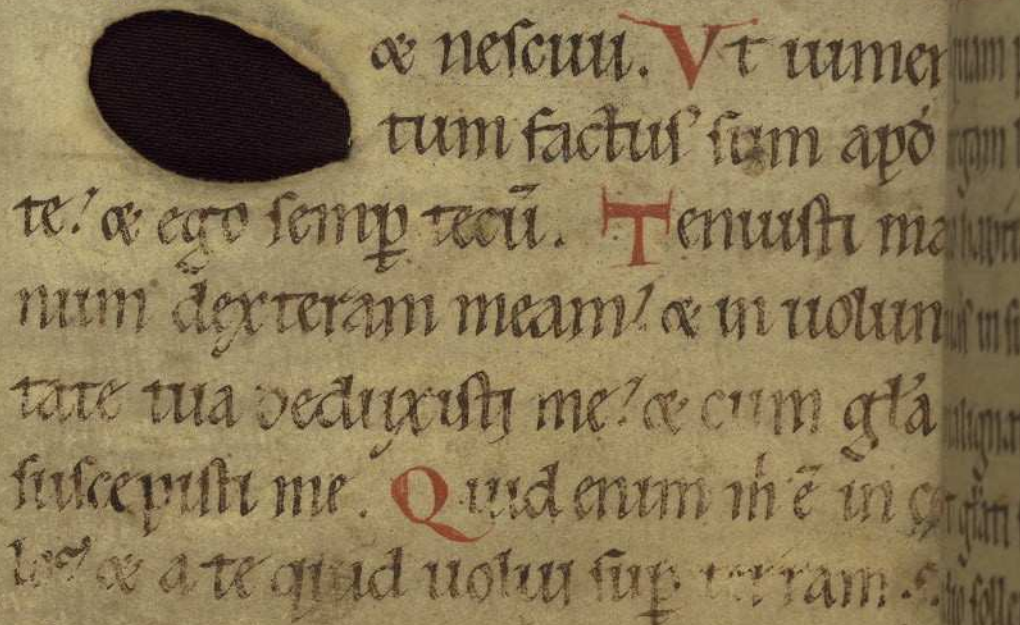 & nescuu. Vt iumen
tum factus sum apđ
te? & ego semꝑ tecū. Tenuisti ma
num dexteram meam? & in uolun
tate tua deduxisti me? & cum gła
suscepisti me. Quid enim m̊ ē in cę
lo? & a te quid uolui suꝑ terram.